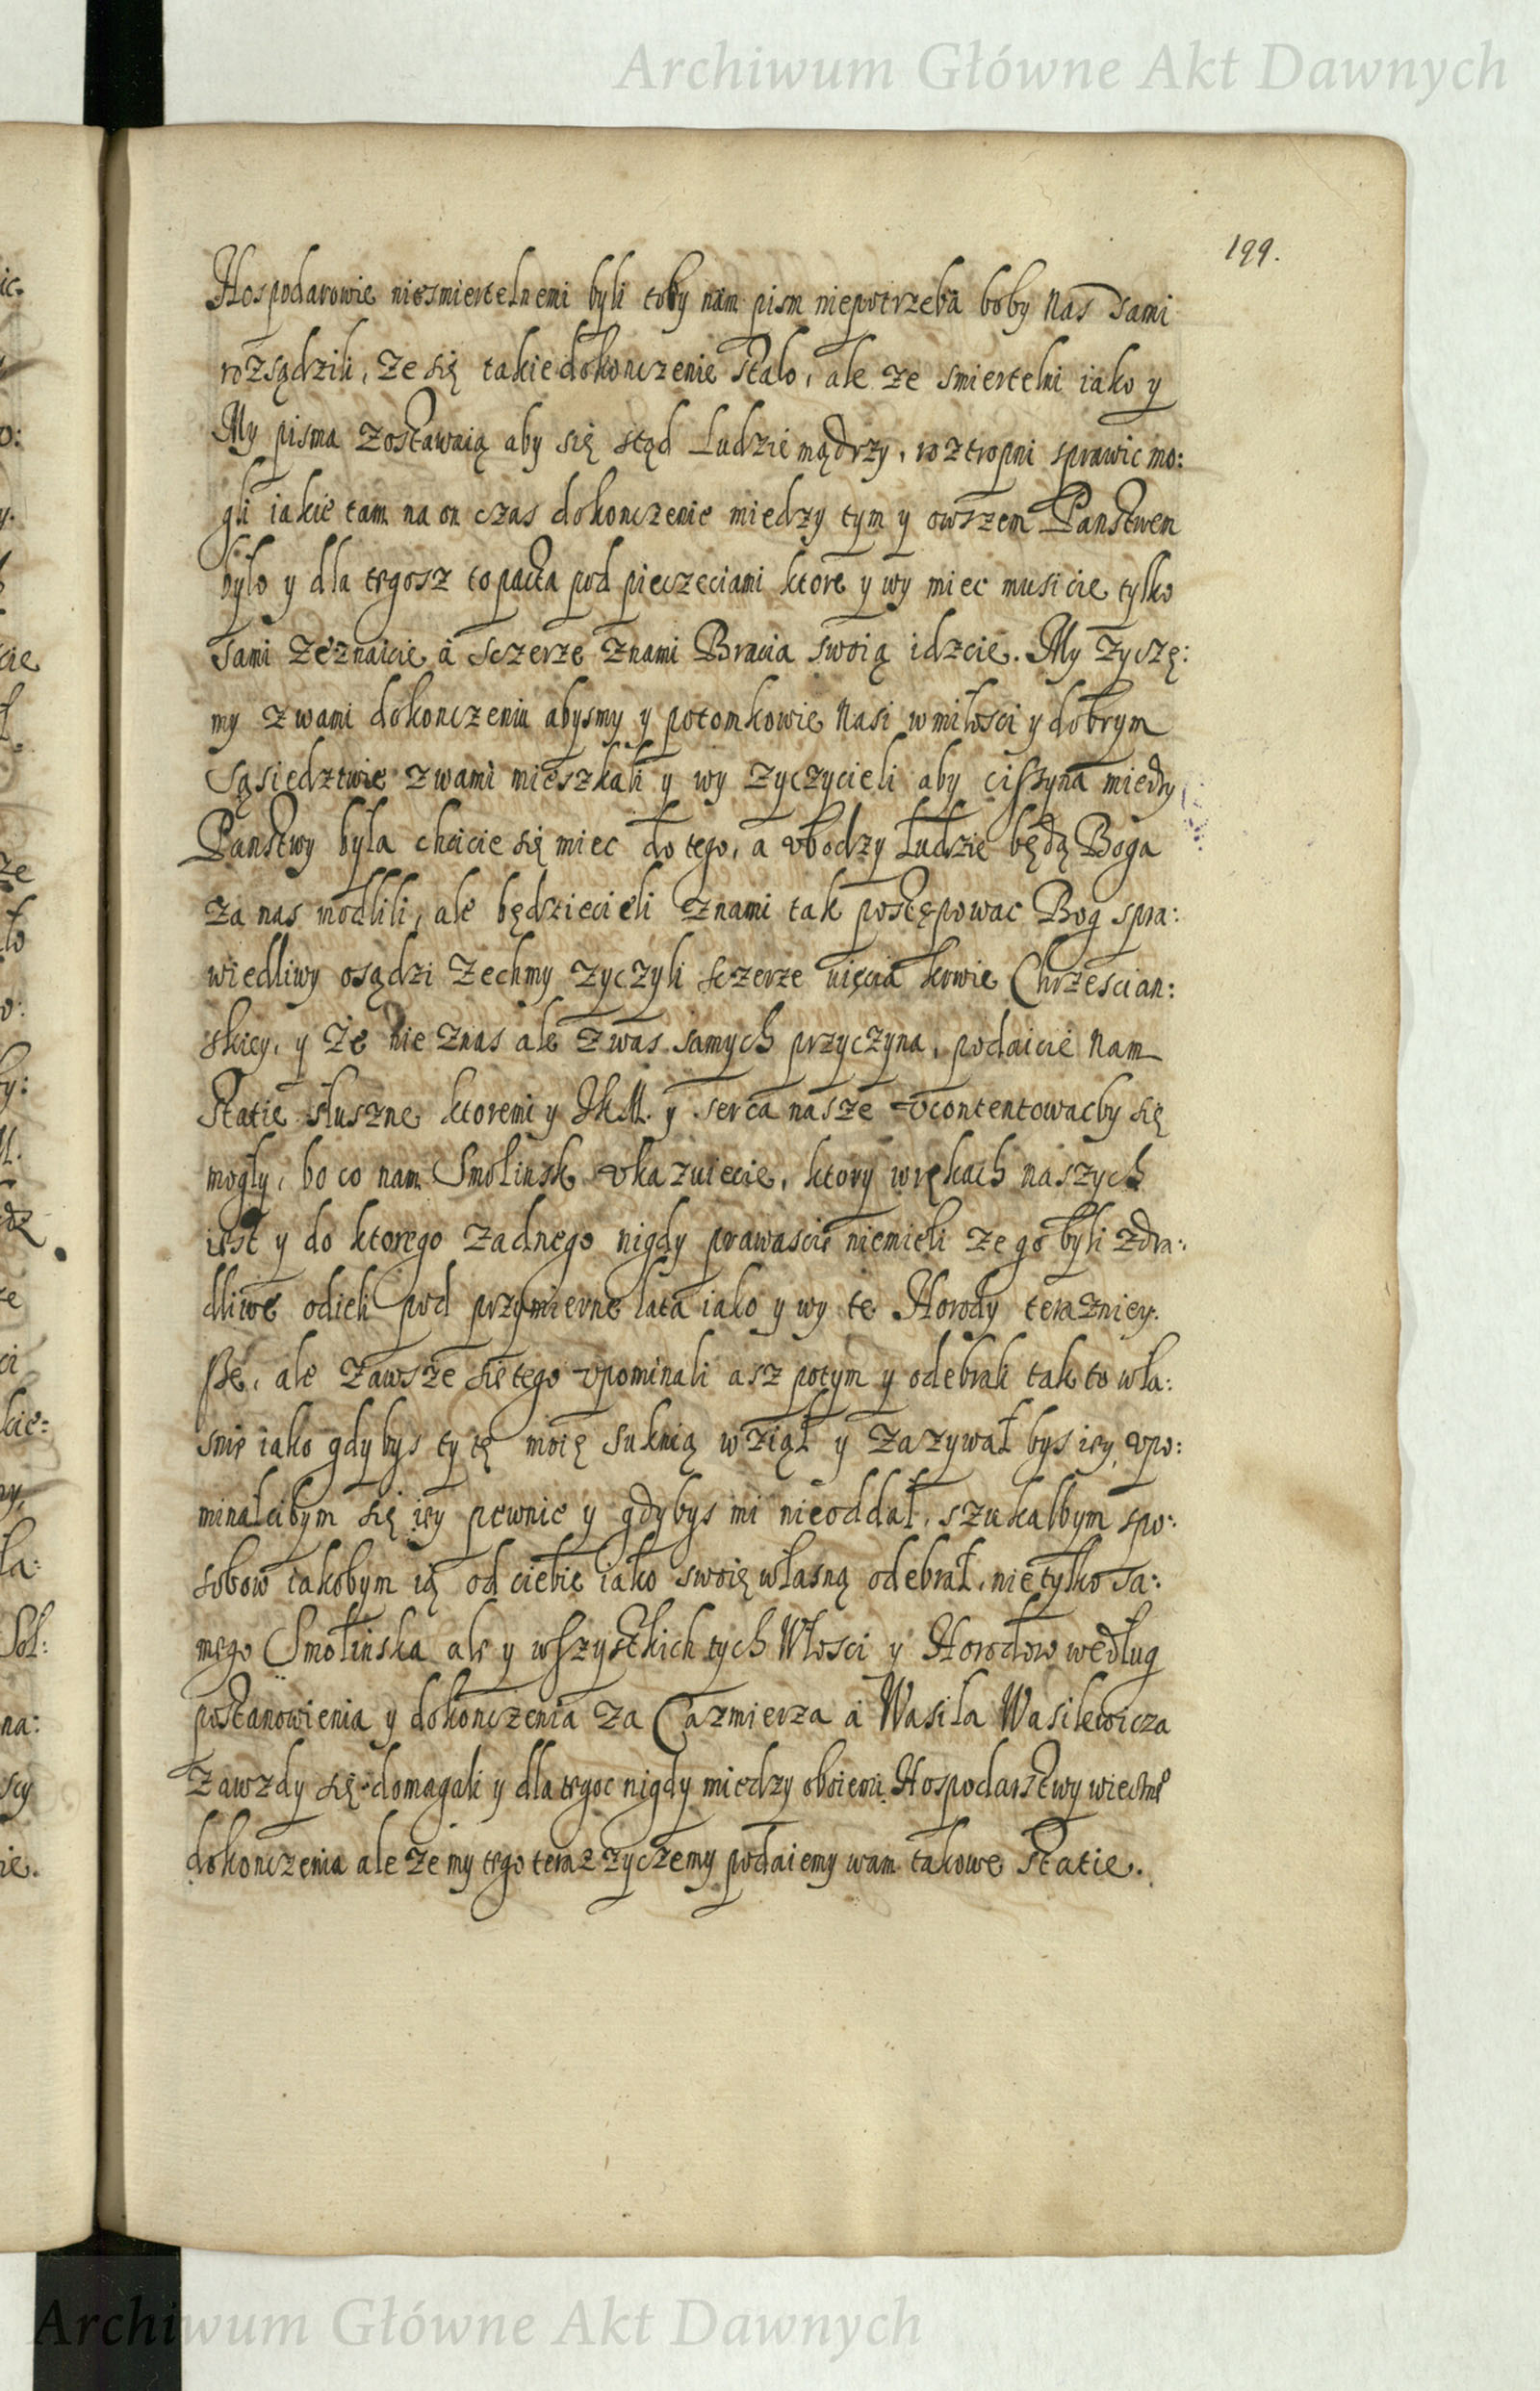 Archiwum Główne Akt Dawnych
199.
Hospodarowie niesmiertelnemi byli toby nam pism niepotrzeba boby nas sami
rozsądzili, ze się takie dokonczenie stało, ale ze smiertelni iako y
My pisma zostawuią aby się stąd Ludzie mądrzy, roztropni sprawic mo:
gli iakie tam na on czas dokonczenie miedzy tym y owszem Panstwem
było y dla tegosz to pacta pod pieczeciami ktore y wy miec musicie tylko
sami zeznaicie a sczerze znami Bracia swoią idzcie. My zyczę:
my zwami dokonczenia abysmy y potomkowie nasi w miłosci y dobrym
Sąsiedztwie zwami mieszkali y wy zyczycieli aby ciszyna miedzy
Panstwy była chcicie się miec do tego, a vbodzy Ludzie będą Boga
za nas modlili, ale będziecieli znami tak postępowac Bog spra:
wiedliwy osądzi zechmy zyczyli sczerze uięcia krwie Chrzescian:
skiey, y że nie znas ale zwas samych przyczyna, podaicie nam
statie słuszne ktoremi y JKM. y serca nasze vcontentowacby się
mogły, bo co nam Smolinsk vkazuiecie, ktory wrękach naszych
iest y do ktorego zadnego nigdy prawascie niemieli ze go byli zdra:
dliwe odieli pod przymierne lata iako y wy te Horody terazniey:
sze, ale zawsze się tego vpominali asz potym y odebrali tak to wła:
snie iako gdybys ty tę moię suknią wziął y zazywał bys iey, vpo:
minałcibym się iey pewnie y gdybys mi nieoddał, szukałbym spo:
sobow iakobym ią od ciebie iako swoię własną odebrał, nie tylko sa:
mego Smolinska ale y wszystkich tych Włosci y Horodow według
postanowienia y dokonczenia za Cazmierza a Wasila Wasilewicza
zawzdy się domagali y dla tegoc nigdy miedzy oboiemi Hospodarstwy wiecznego
dokonczenia ale ze my tego teraz zyczemy podaiemy wam takowe statie.
Archiwum Główne Akt Dawnych